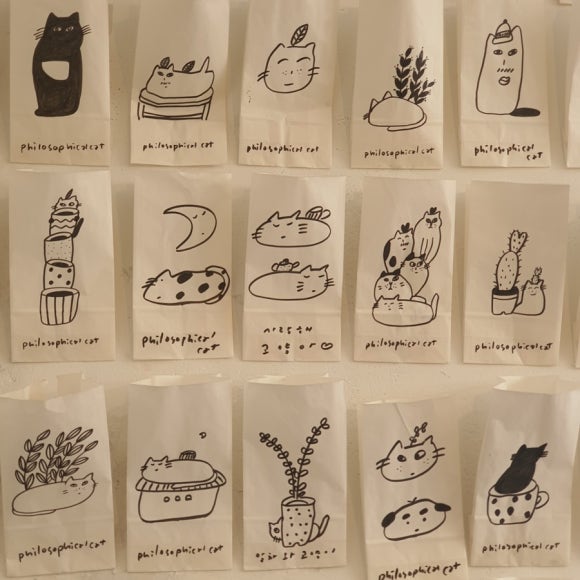 philosophical cat
philosophical cat
philosophical cat
philosophical cat
philosophical
cat
philosophical cat
philosophical
cat
사랑해
고양아♡
philosophical cat
philosophical cat
philosophical cat
philosophical cat
philosophical cat
philosophical cat